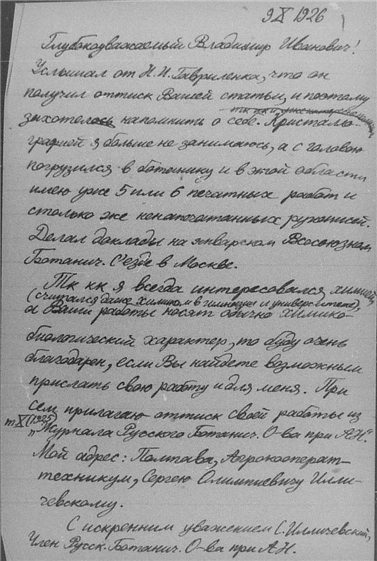 9 X 1926
Глубокоуважаемый Владимир Иванович!
Услышал от Н.И. Гавриленка, что он
получил оттиск Вашей статьи, и поэтому
захотелось напомнить о себе. Кристалло-
графией я больше не занимаюсь, а с головою
погрузился в ботанику и в этой области
имею уже 5 или 6 печатных работ и
столько же ненапечатанных рукописей.
Делал доклады на январском Всосоюзном
Ботанич. Съезде в Москве.
Тк кк я всегда интересовался химией
(считался даже химиком в гимназии и университете),
а Ваши работы носят обычно химико-
биологический характер, то буду очень
благодарен, если Вы найдете возможным
прислать свою работу и для меня. При
сем прилагаю оттиск своей работы из
т X (1925)
"Журнала Русского Ботанич. О-ва при А.Н."
Мой адрес: Полтава, Агрокооперат-
техникум, Сергею Олимпиевичу Илли-
чевскому.
С искренним уважением С. Илличевский,
Член Русск. Ботанич. О-ва при А.Н.